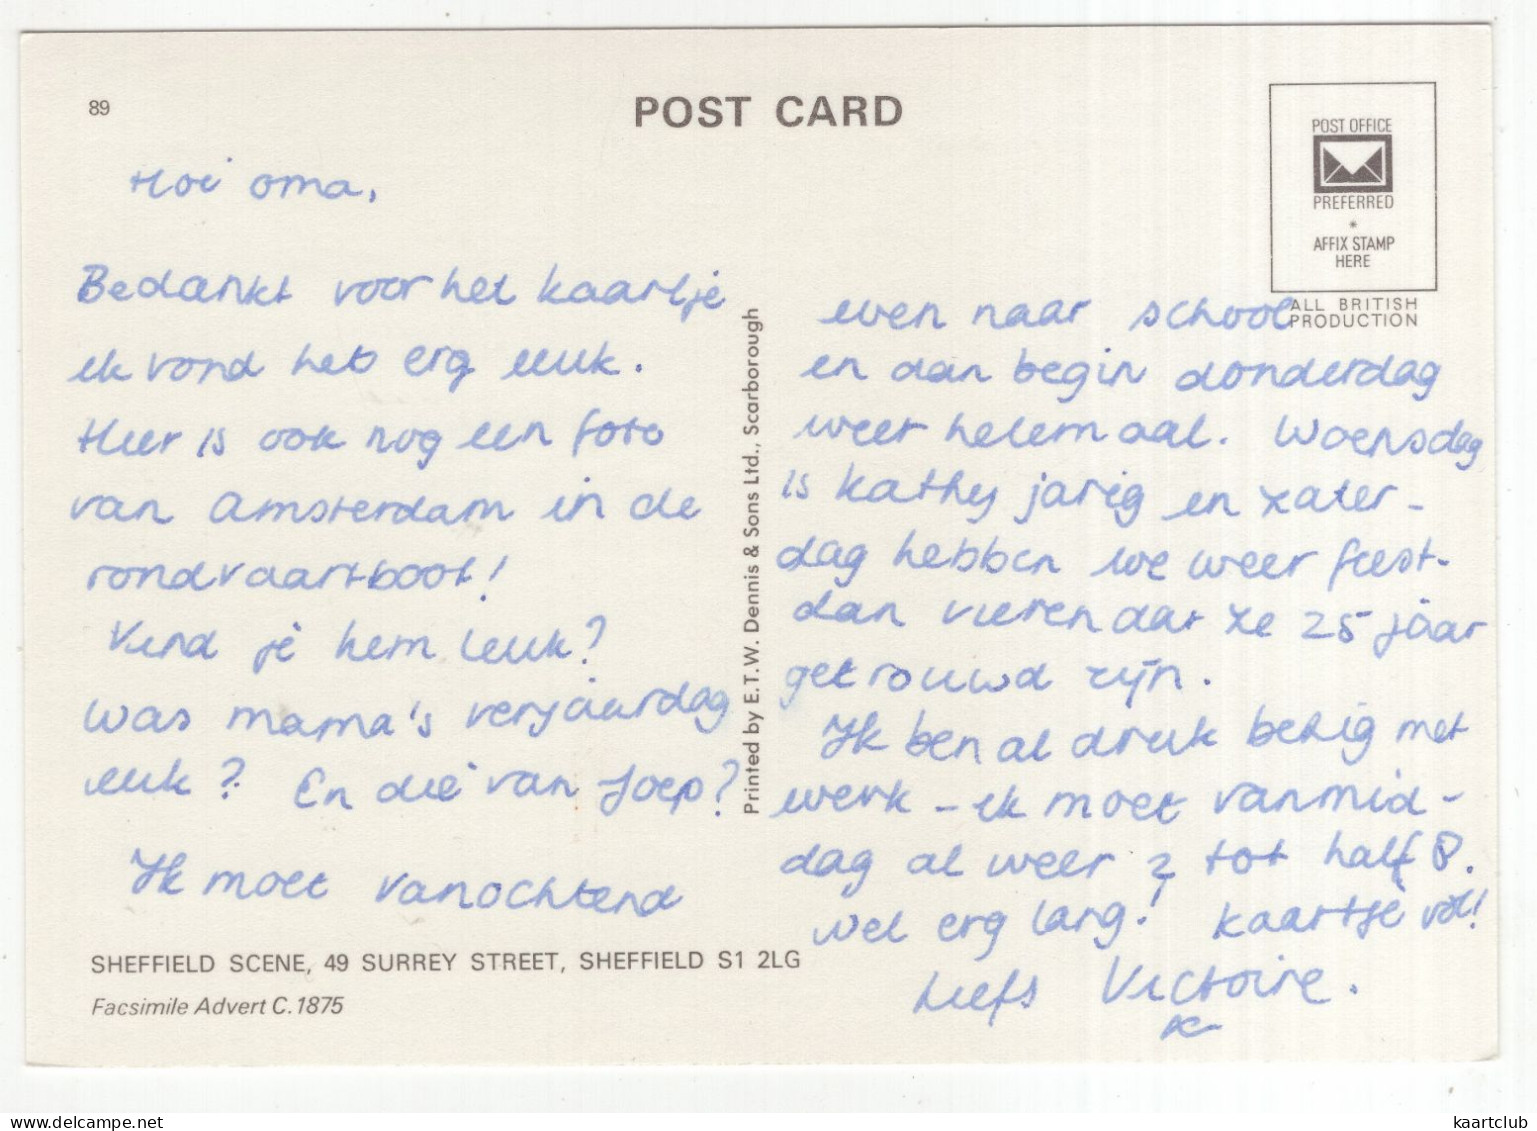 89
POST CARD
POST OFFICE
PREFERRED
AFFIX STAMP
HERE
ALL BRITISH
PRODUCTION
Hoi oma,
Bedankt voor het kaartje
ik vond het erg leuk.
Hier is ook nog een foto
van Amsterdam in de
rondvaartboot!
Vind je hem leuk?
Was mama's verjaardag
leuk? En die van Joep?
Ik moet vanochtend
SHEFFIELD SCENE, 49 SURREY STREET, SHEFFIELD S1 2LG
Facsimile Advert C.1875
Printed by E.T.W. Dennis & Sons Ltd., Scarborough
even naar school
en dan begin donderdag
weer helemaal. Woensdag
is Kathy jarig en zater-
dag hebben we weer feest-
dan vieren dat ze 25 jaar
getrouwd zijn.
Ik ben al druk bezig met
werk - ik moet vanmid-
dag al weer 2 tot half 8.
wel erg lang! Kaartje vol!
Liefs Victoire.
kaartclub
www.delcampe.net